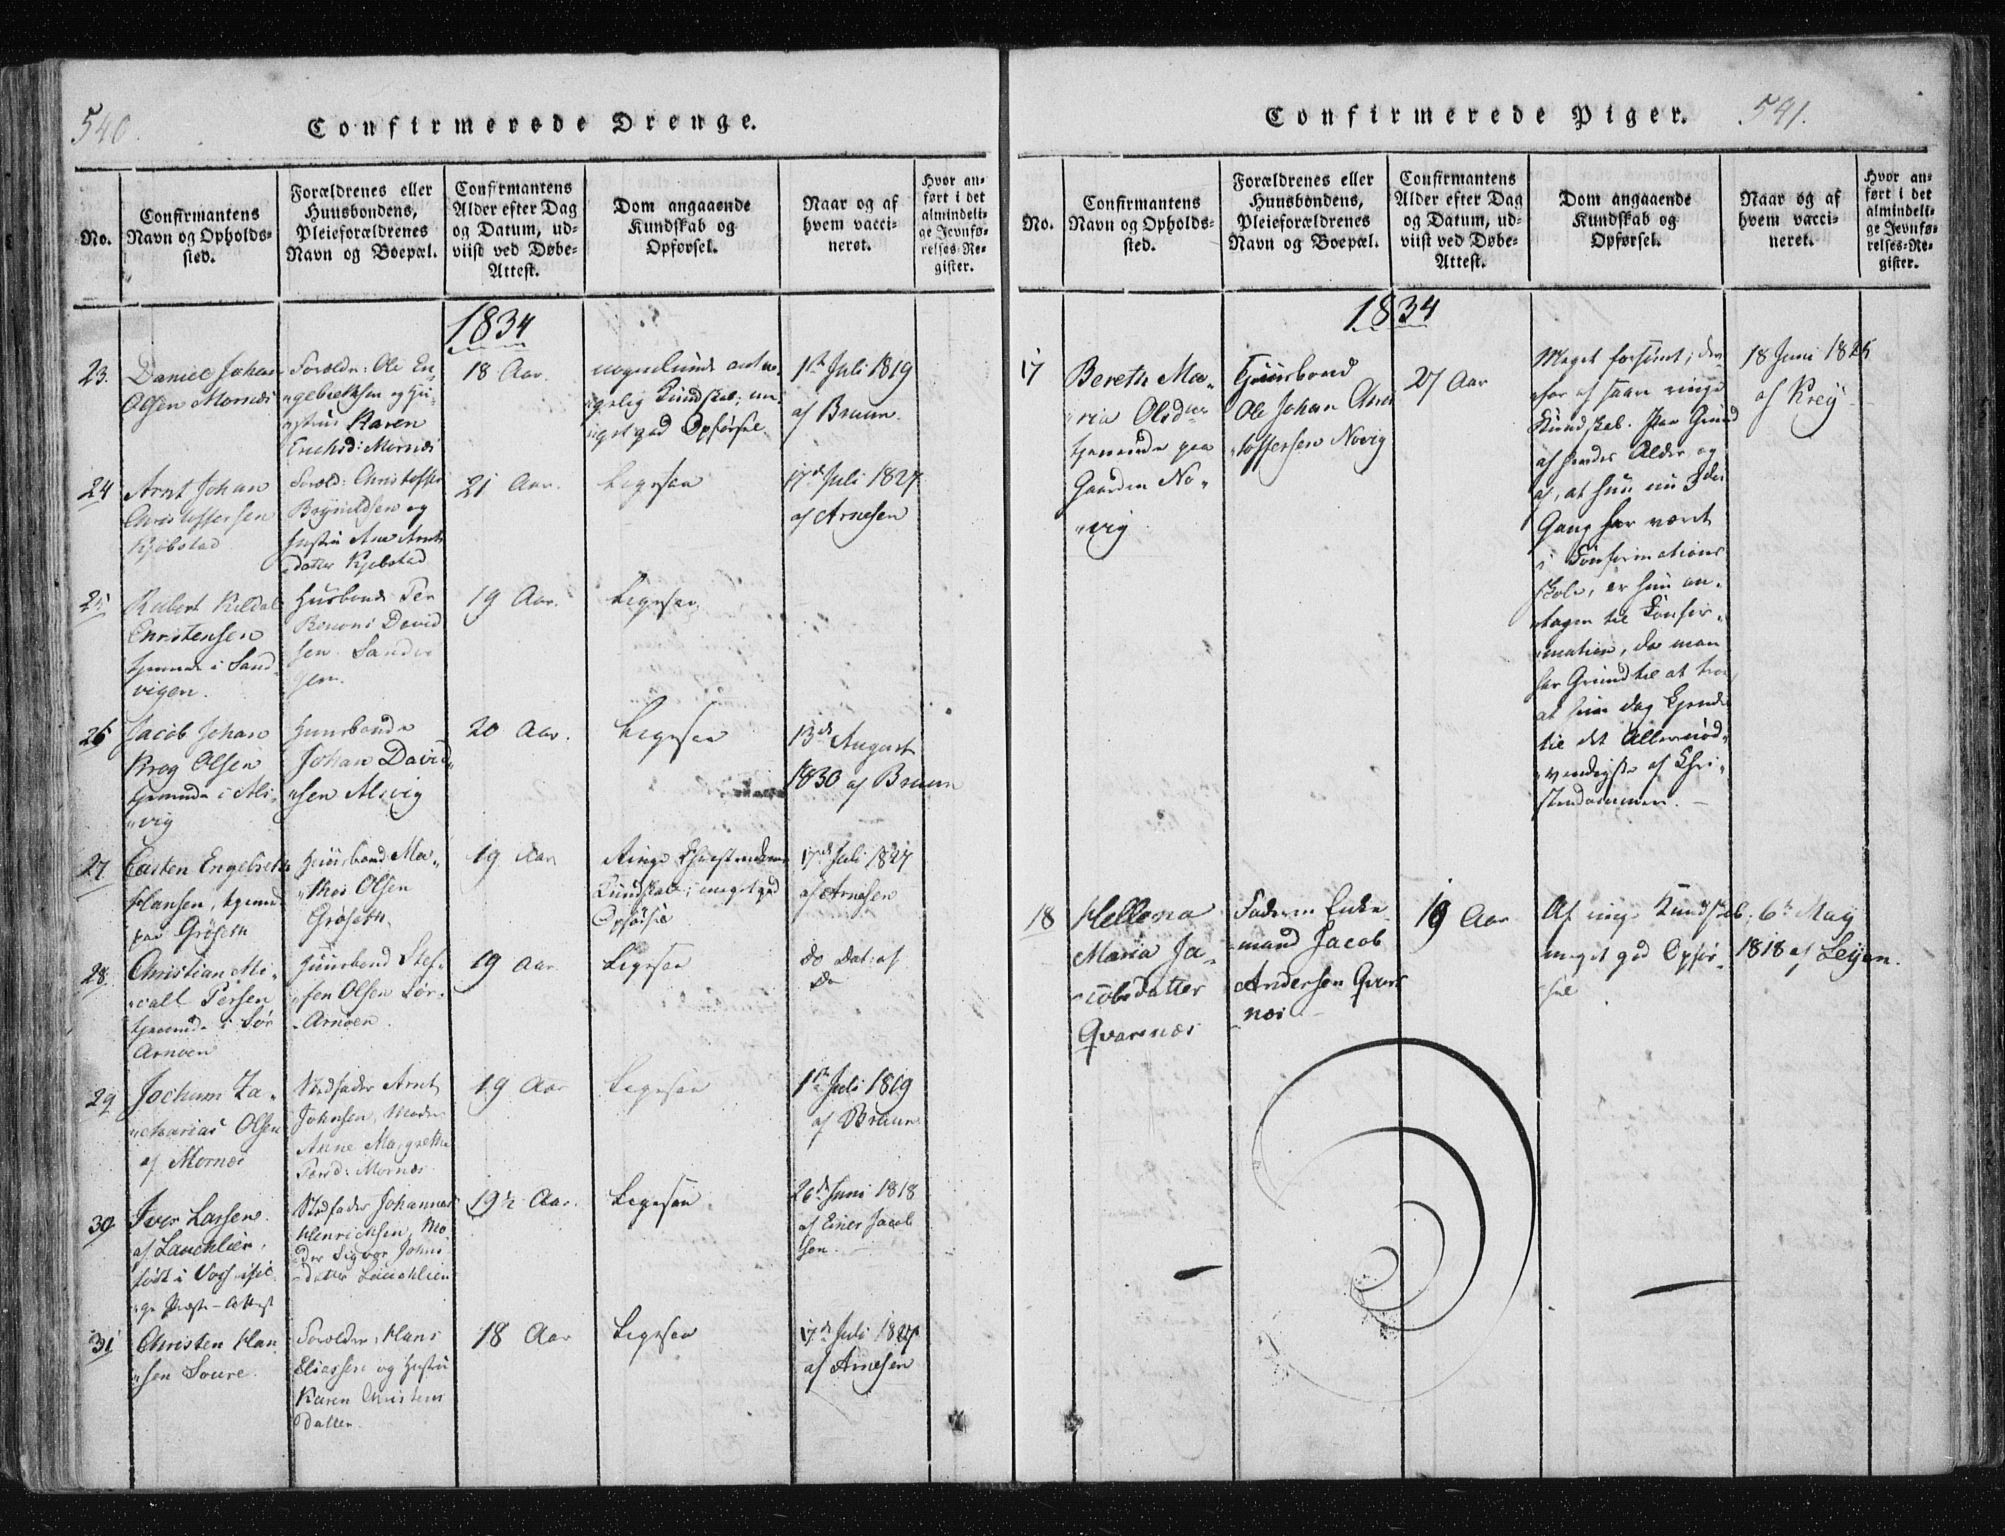 540.
Confirmerede Drenge.
No.
Confirmantens
Navn og Opholds-
sted.
Forældrenes eller
Huusbondens,
Pleieforældrenes
Navn og Boepæl.
Confirmantens
Alder efter Dag
og Datum, ud-
viist ved Døbe-
Attest.
Dom angaaende
Kundskab og
Opførsel.
Naar og af
hvem vacci-
neret.
Hvor an-
ført i det
almindeli-
ge Jevnfø-
relses-Re-
gister.
1834
23.
Daniel Johan
Olsen Mornæs
Forældr: Ole En-
gebrektsen og Hu-
strue Karen
Erichsd: Mornæs
18 Aar.
Kundskab;
god Opførsel
1ste Juli 1819
af Bruun
24
Arnt Johan
Christoffersen
Kjøbstad
Foræld: Christoffer
og
Hustru Ane Arnts
datter Kjøbstad
21 Aar.
Ligesaa
17de Juli 1827
af Arnesen
25
Robert Kildal
Christensen
tjenende i Sand
vigen.
Husbonde Per
Benoni David
sen Sandvi
gen.
19 Aar.
Ligesaa
26
Jacob Johan
Krog Olsen
tjenende i Als-
vig
Huusbonde
Johan David-
sen Alsvig
20 Aar.
Ligesaa
13de August
1830 af Bruun
27
Casten Engelbreth
Hansen, tjenende
paa Grøseth
Huusbond Ma-
this Olsen
Grøseth.
19 Aar
Ringe Christendoms
Kundskab; meget god
Opførsel
17de Juli 1827
af Arnesen
28.
Christian Mi-
call Persen
tjenende i Sør
Arnøen
Huusbond Stef-
fen Olsen Sør-
Arnøen.
19 Aar
Ligesaa
do Dat: af
Do
29
Jochum Za-
charias Olsen
af Mornæs
Stedfader Arnt
Johnsen, Moder
Anne Margrethe
Persd: Mornæs
19 Aar
Ligesaa
1ste Juli 1819
af Bruun
30
Iver Lassen
af Lauchlien,
født i
ge Præste-Attest
Stedfader Johannes
Henrichsen, Mo
der Sigvor Johns
datter Lauchlien
19½ Aar.
Ligesaa
26de Juni 1818
af Einer Jacob
sen
31
Christen Han
sen Soure.
Forældre: Hans
Eliassen og Hustru
Karen Christens
datter
18 Aar
Ligesaa
17de Juli 1827
af Arnesen
Confirmerede Piger.
541.
No.
Confirmantens
Navn og Opholds-
sted.
Forældrenes eller
Huusbondens,
Pleieforældrenes
Navn og Boepæl.
Confirmantens
Alder efter Dag
og Datum, ud-
viist ved Døbe-
Attest.
Dom angaaende
Kundskab og
Opførsel.
Naar og af
hvem vacci-
neret.
Hvor an-
ført i det
almindeli-
ge Jevnfø-
relses-Re-
gister.
1834
17
Bereth Ma-
ria Olsdtr
tjenende paa
Gaarden No-
vig
Huusbond
Ole Johan Chris
toffersen Novig
27 Aar
Meget forsømt; der
for af saare ringe
Kundskab. Paa Grund
af hendes Alder og
af, at hun nu 3die
Gang har været
i Confirmations
skole, er hun an-
tagen til Confir-
mation, da man
har Grund til at troe
at hun dog kjender
til det Allernød-
vendigste af Chri-
stendommen.
18 Juni 1825
af Krey
18
Hellena
Maria Ja-
cobsdatter
Qvarnæs
Faderen Enke
mand Jacob
Andersen Qvar
næs
19 Aar
Af ringe Kundskab;
meget god Opfør-
sel
6te May
1818 af Leyen.